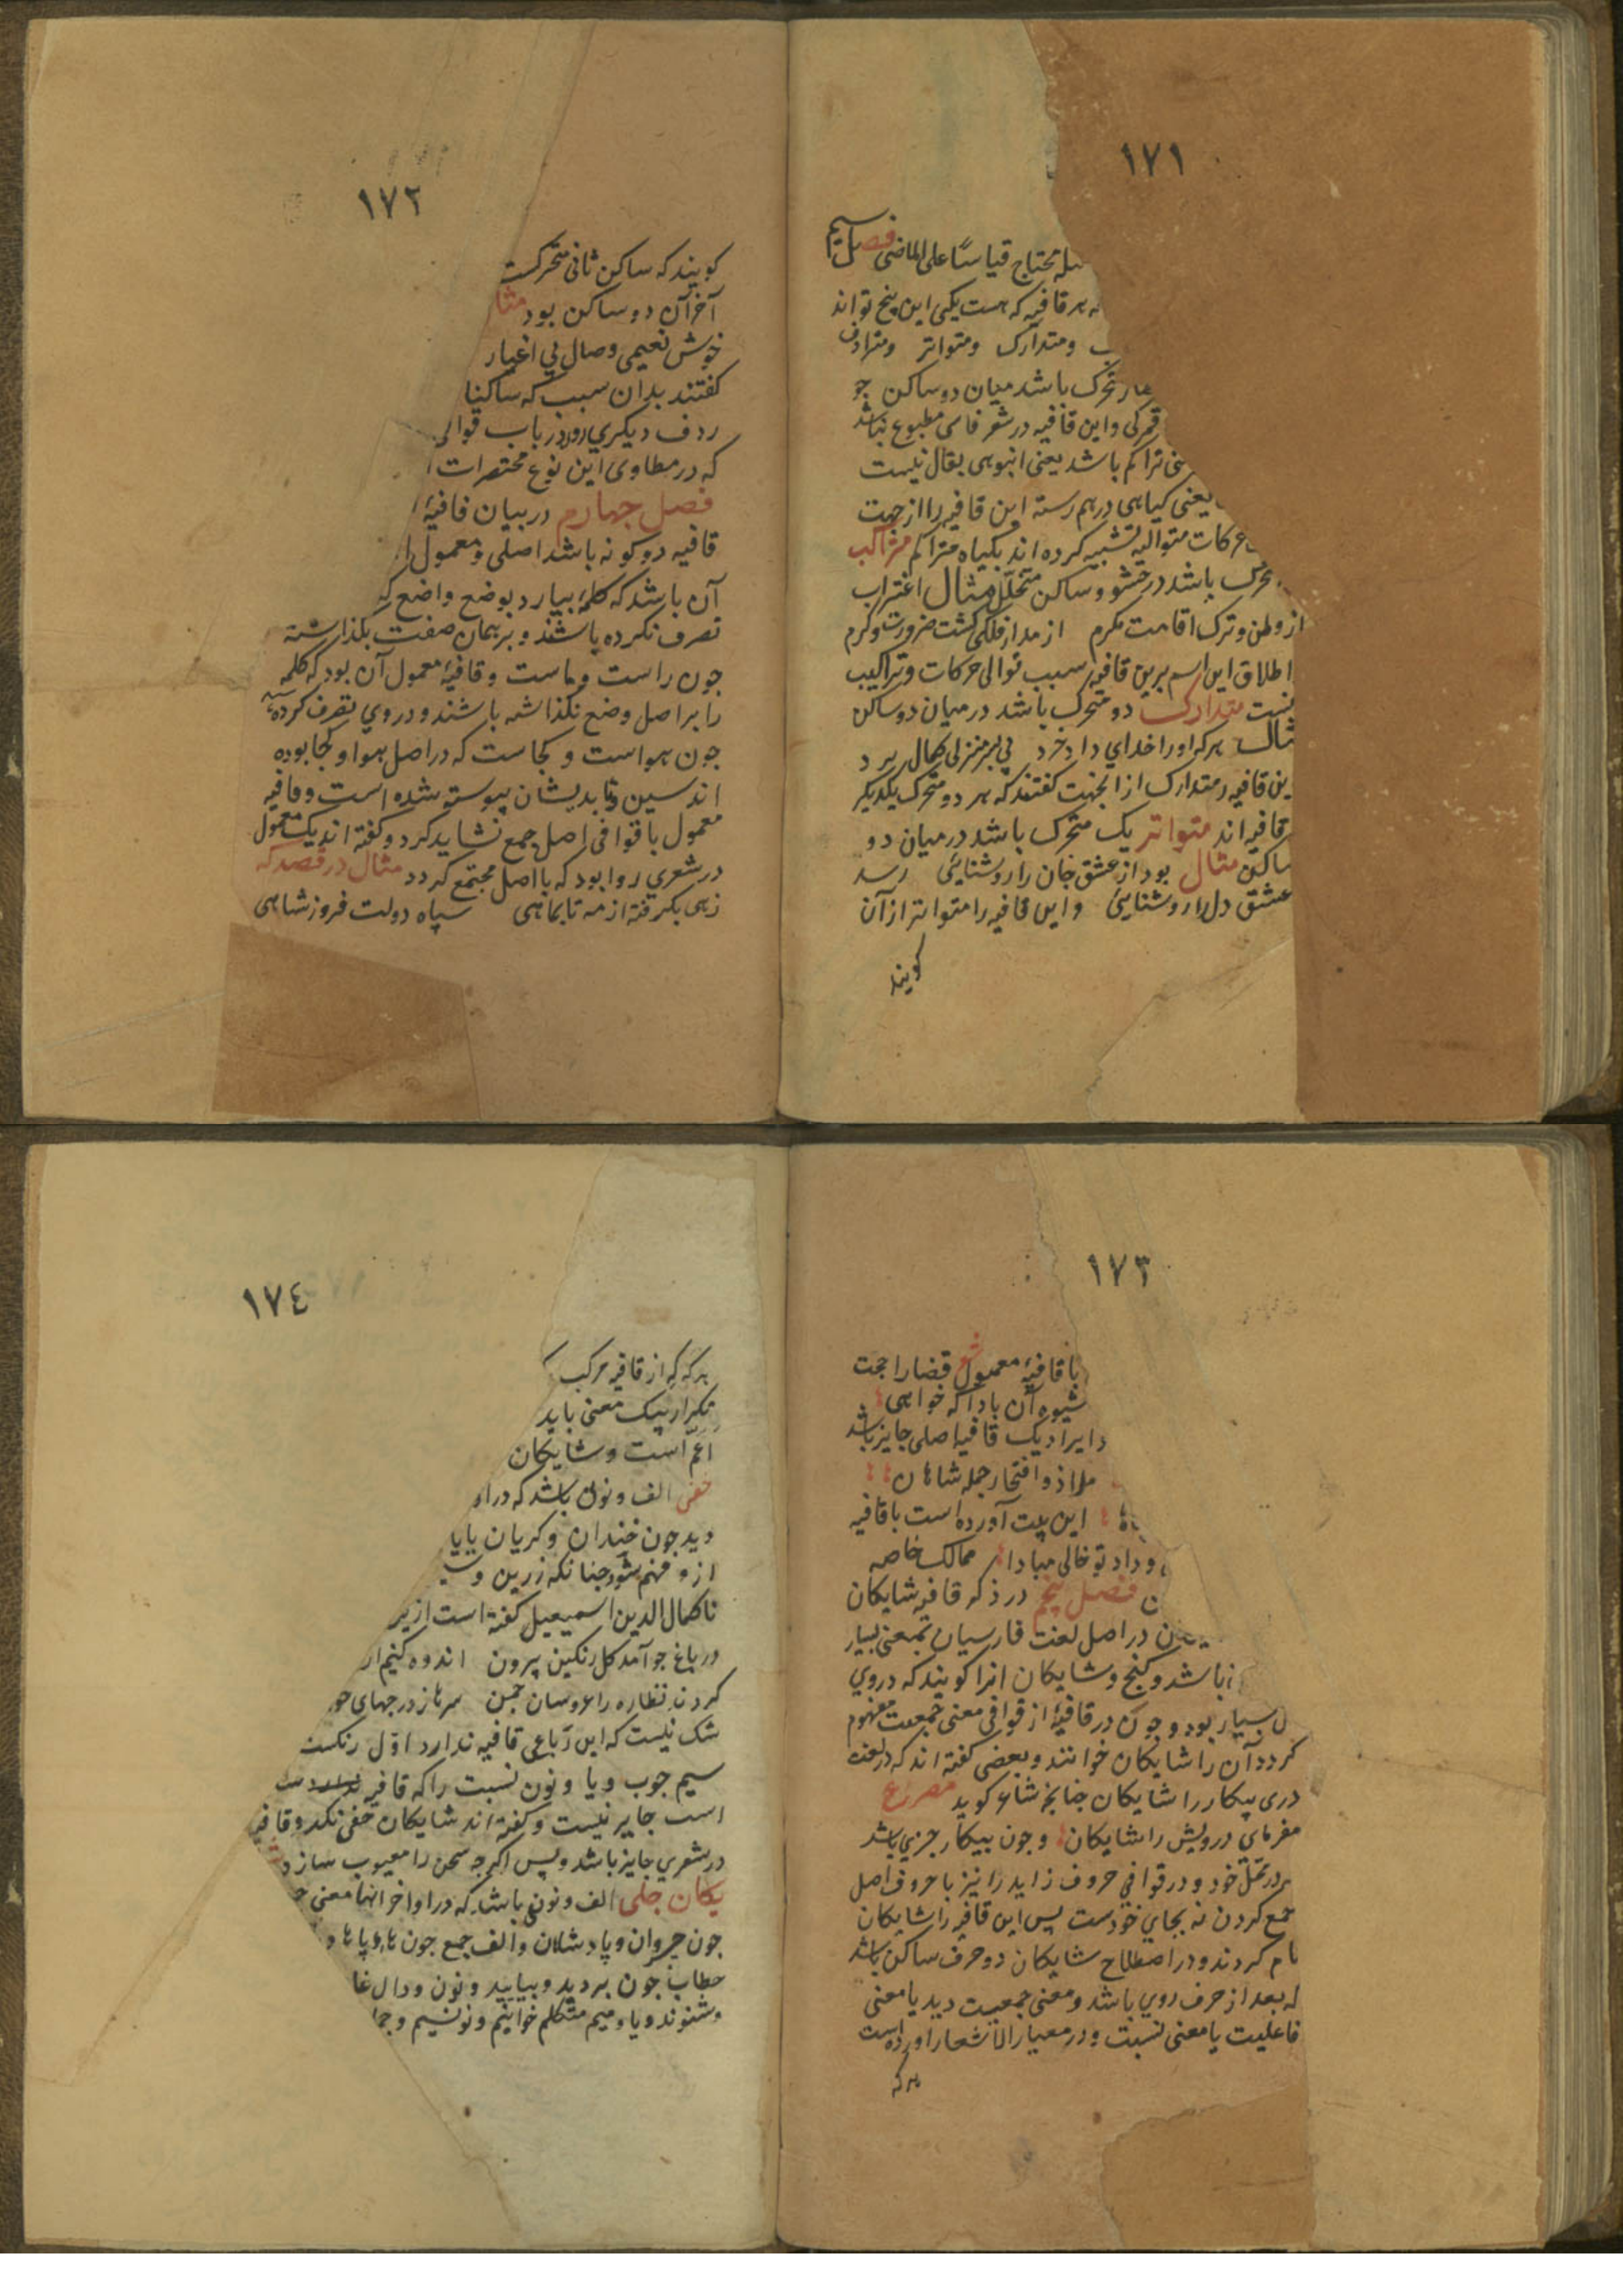 ١٧١
تحتاج قیاسًا علی الماضی فصل سیم
هر قافیه که هست یکی این پنج تواند
ومتدارک ومتواتر ومترادف
تحرک باشد میان دو ساکن جو
واین قافیه در شعر فاسی مطبوع نباشد
تراکم باشد یعنی انبوهی یقال نیست
یعنی کیاهی درهم رسته این قافیه را از جهت
حرکات متوالیه تشبیه کرده اند بکیاه متراکم متراکب
باشد در حشو وساکن متخلل مثال اغتراب
از وطن وترک اقامت مکرم از مدار فلکی کشت ضرورت وکرم
اطلاق این اسم برین قافیه سبب توالی حرکات وتراکیب
متدارک دو متحرک باشد در میان دو ساکن
مثال هرکه اورا خدای داد خرد پی بر منزلی کمال برد
این قافیه متدارک از انجهت کفتند که هر دو متحرک یکدیکر
قافیه اند متواتر یک متحرک باشد در میان دو
ساکن مثال بود از عشق جان را روشنایی رسد
عشق دل را روشنایی واین قافیه را متواتر از آن
کویند
١٧٢
کویند که ساکن ثانی متحرکست
آخر آن دو ساکن بود مثا
خوش نعیمی وصال بی اغیار
کفتند بدان سبب که ساکنا
ردف دیکری روذ زباب قوالی
که در مطاوی این نوع مختصرات
فصل جهارم در بیان قافیهٔ
قافیه دو کونه باشد اصلی ومعمول
آن باشد که کلمهٔ بیارد بوضع واضع که
تصرف نکرده باشند و بر همان صفت بکذاشته
جون راست وماست وقافیهٔ معمول آن بود که کلمه
را بر اصل وضع نکذاشته باشند ودر وی تصرف کرده
جون هواست و کجاست که در اصل هوا و کجا بوده
اند سین وتا بدیشان پیوسته شده است وقافیه
معمول با قوافی اصل جمع نشاید کرد و کفته اند یک معمول
در شعری روا بود که با اصل مجتمع کردد مثال در قصد که
زهی بکرفته از مه تا بماهی سپاه دولت فروز شاهی
١٧٣
با قافیهٔ معمول شعر قضا را حجت
شیوه آن بادا که خواهی
ایراد یک قافیه اصلی جایز باشد
ملاذ وافتخار جمله شاهان
این بیت آورده است با قافیه
داد تو خالی مبادا ممالک خاصه
فصل پنجم در ذکر قافیه شایکان
در اصل لغت فارسیان بمعنی بسیار
باشد و کنج وشایکان انرا کویند که در وی
بسیار بود وجون در قافیهٔ از قوافی معنی جمعیت مفهوم
کردد آن را شایکان خوانند وبعضی کفته اند که در لغت
دری بیکار را شایکان جنانجه شاعر کوید مصراع
مفرمای درویش را شایکان وجون بیکار جزی باشد
در محل خود ودر قوافی حروف زاید را نیز با حروف اصل
جمع کردن نه بجای خودست پس این قافیه را شایکان
نام کردند ودر اصطلاح شایکان دو حرف ساکن باشد
که بعد از حرف روی باشد ومعنی جمعیت دید یا معنی
فاعلیت یا معنی نسبت ودر معیار الاشعار اورده است
هر که
١٧٤
هر که که از قافیه مرکب
تکرار بیک معنی باید
اعم است وشایکان
خفی الف ونون باشد که در او
دید جون خندان وکریان یایا
ازو فهم شود جنانکه زرین وسیـ
ناکمال الدین اسمیعیل کفته است از بر
در باغ جو آمد کل رنکین بیرون اندوه کنیم از
کردند نظاره را عروسان جمن سرها ز درجهای
شک نیست که این رباعی قافیه ندارد اول رنکست
سیم جوب ویا ونون نسبت را که قافیه
است جایر نیست و کفته اند شایکان خفی نکرد وقافیه
در شعری جایز باشد وپس اکرجه سخن را معیوب سازد
یکان جلی الف ونونی باشد که در اواخر انها معنی
جون وپادشاهان والف جمع جون
خطاب جون بردید وبیایید ونون ودال غا
وشنوند ویا ومیم متکلم خوانیم ونویسیم وجا